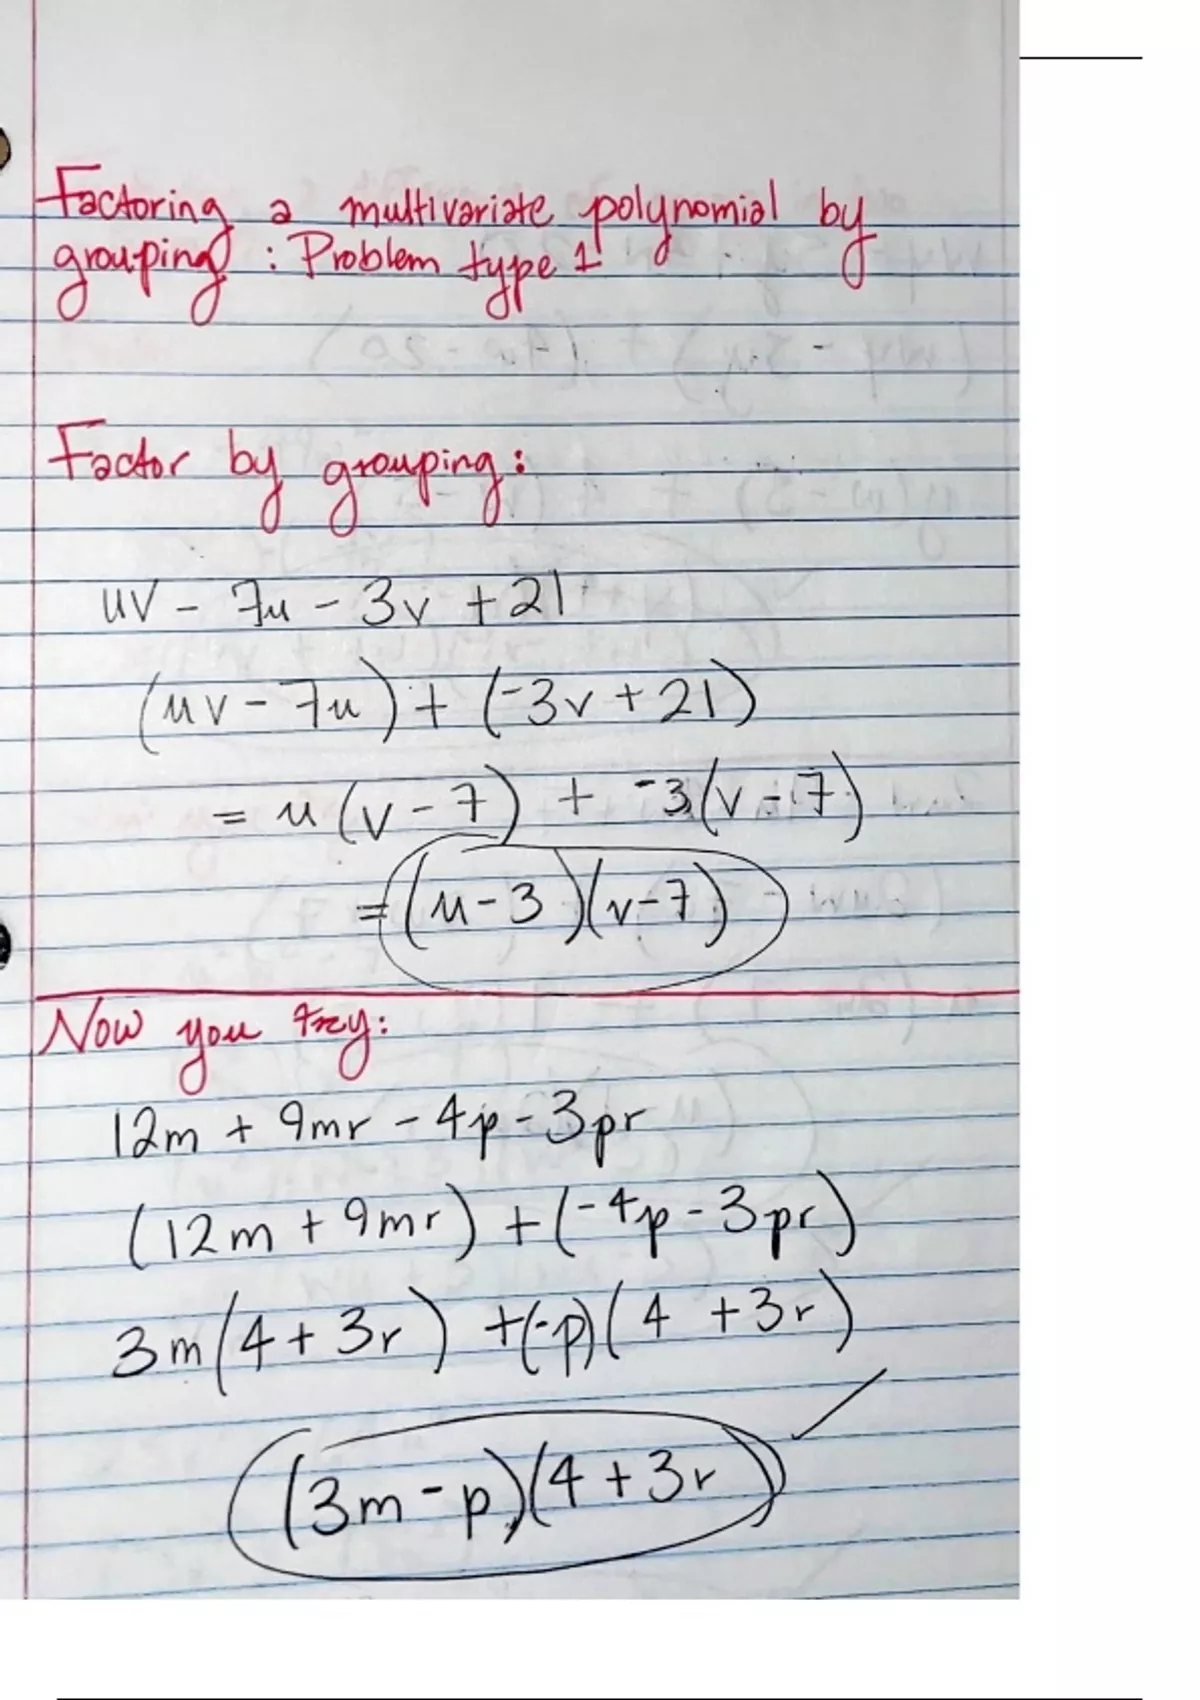 Factoring a multivariate polynomial by
grouping : Problem type 1
Factor by grouping :
uv - 7u - 3v + 21
(uv - 7u) + (-3v + 21)
= u(v - 7) + -3(v - 7)
= (u - 3)(v - 7)
Now you try:
12m + 9mr - 4p - 3pr
(12m + 9mr) + (-4p - 3pr)
3m(4 + 3r) + (-p)(4 + 3r)
(3m - p)(4 + 3r)